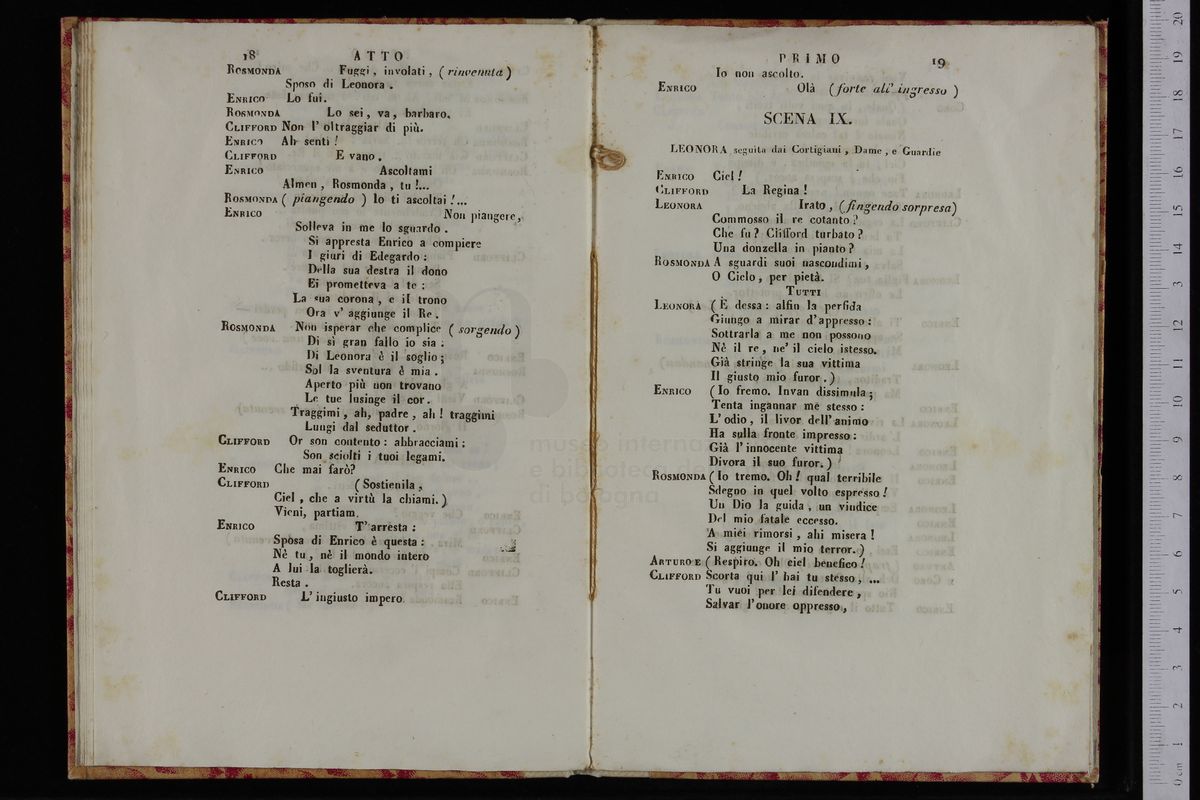 18 ATTO
ROSMONDA Fuggi, involati, (rinvenuta)
Sposo di Leonora.
ENRICO Lo fui.
ROSMONDA Lo sei, va, barbaro.
CLIFFORD Non l' oltraggiar di più.
ENRICO Ah senti!
CLIFFORD E vano.
ENRICO Ascoltami
Almen, Rosmonda, tu!...
ROSMONDA (piangendo) Io ti ascoltai!...
ENRICO Non piangere,
Solleva in me lo sguardo.
Si appresta Enrico a compiere
I giuri di Edegardo:
Della sua destra il dono
Ei prometteva a te:
La sua corona, e il trono
Ora v' aggiunge il Re.
ROSMONDA Non isperar che complice (sorgendo)
Di sì gran fallo io sia:
Di Leonora è il soglio;
Sol la sventura è mia.
Aperto più non trovano
Le tue lusinge il cor.
Traggimi, ah, padre, ah! traggimi
Lungi dal seduttor.
CLIFFORD Or son contento: abbracciami:
Son sciolti i tuoi legami.
ENRICO Che mai farò?
CLIFFORD (Sostienila,
Ciel, che a virtù la chiami.)
Vieni, partiam.
ENRICO T' arresta:
Sposa di Enrico è questa:
Nè tu, nè il mondo intero
A lui la toglierà.
Resta.
CLIFFORD L' ingiusto impero
PRIMO 19
Io non ascolto.
ENRICO Olà (forte all' ingresso)
SCENA IX.
LEONORA seguita dai Cortigiani, Dame, e Guardie
ENRICO Ciel!
CLIFFORD La Regina!
LEONORA Irato, (fingendo sorpresa)
Commosso il re cotanto?
Che fu? Clifford turbato?
Una donzella in pianto?
ROSMONDA A sguardi suoi nascondimi,
O Cielo, per pietà.
TUTTI
LEONORA (È dessa: alfin la perfida
Giungo a mirar d'appresso:
Sottrarla a me non possono
Nè il re, ne' il cielo istesso.
Già stringe la sua vittima
Il giusto mio furor.)
ENRICO (Io fremo. Invan dissimula;
Tenta ingannar me stesso:
L' odio, il livor dell' animo
Ha sulla fronte impresso:
Già l' innocente vittima
Divora il suo furor.)
ROSMONDA (Io tremo. Oh! qual terribile
Sdegno in quel volto espresso!
Un Dio la guida, un vindice
Del mio fatale eccesso.
A miei rimorsi, ahi misera!
Si aggiunge il mio terror.)
ARTURO E (Respiro. Oh ciel benefico!
CLIFFORD Scorta qui l' hai tu stesso, ...
Tu vuoi per lei difendere,
Salvar l'onore oppresso,